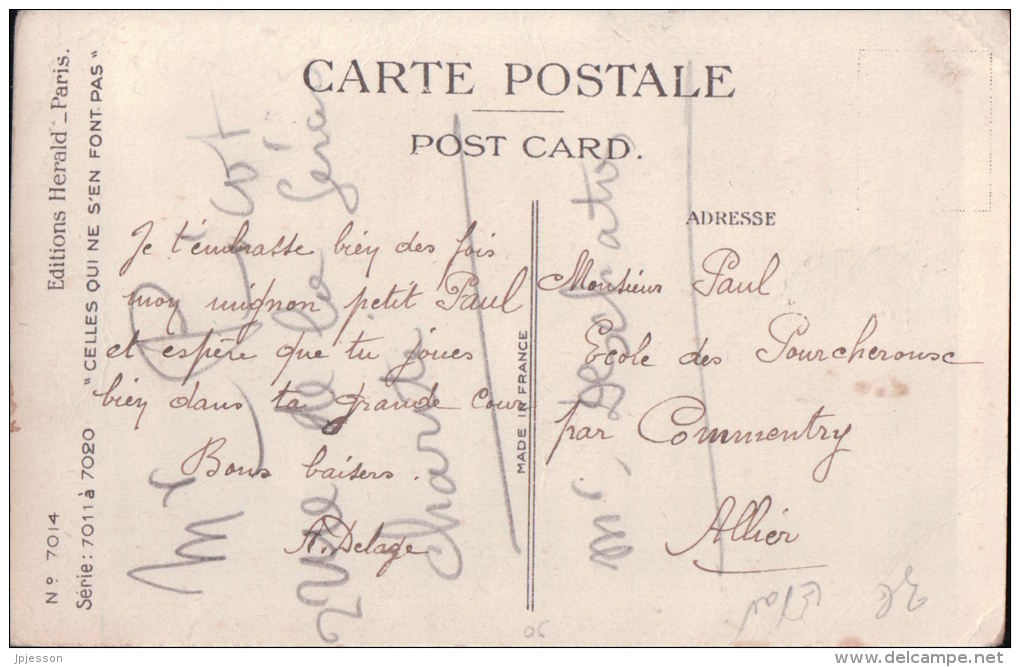 CARTE POSTALE
POST CARD.
Editions Herald _ Paris.
"CELLES QUI NE S'EN FONT PAS"
Nº 7014
Série: 7011 à 7020
MADE IN FRANCE
ADRESSE
Je t'embrasse bien des fois
mon mignon petit Paul
et espère que tu joues
bien dans ta grande cour
Bons baisers.
A. Delage
Monsieur Paul
Ecole des Pourcherousc
par Commentry
Allier
Rue de la
jpjesson
www.delcampe.net